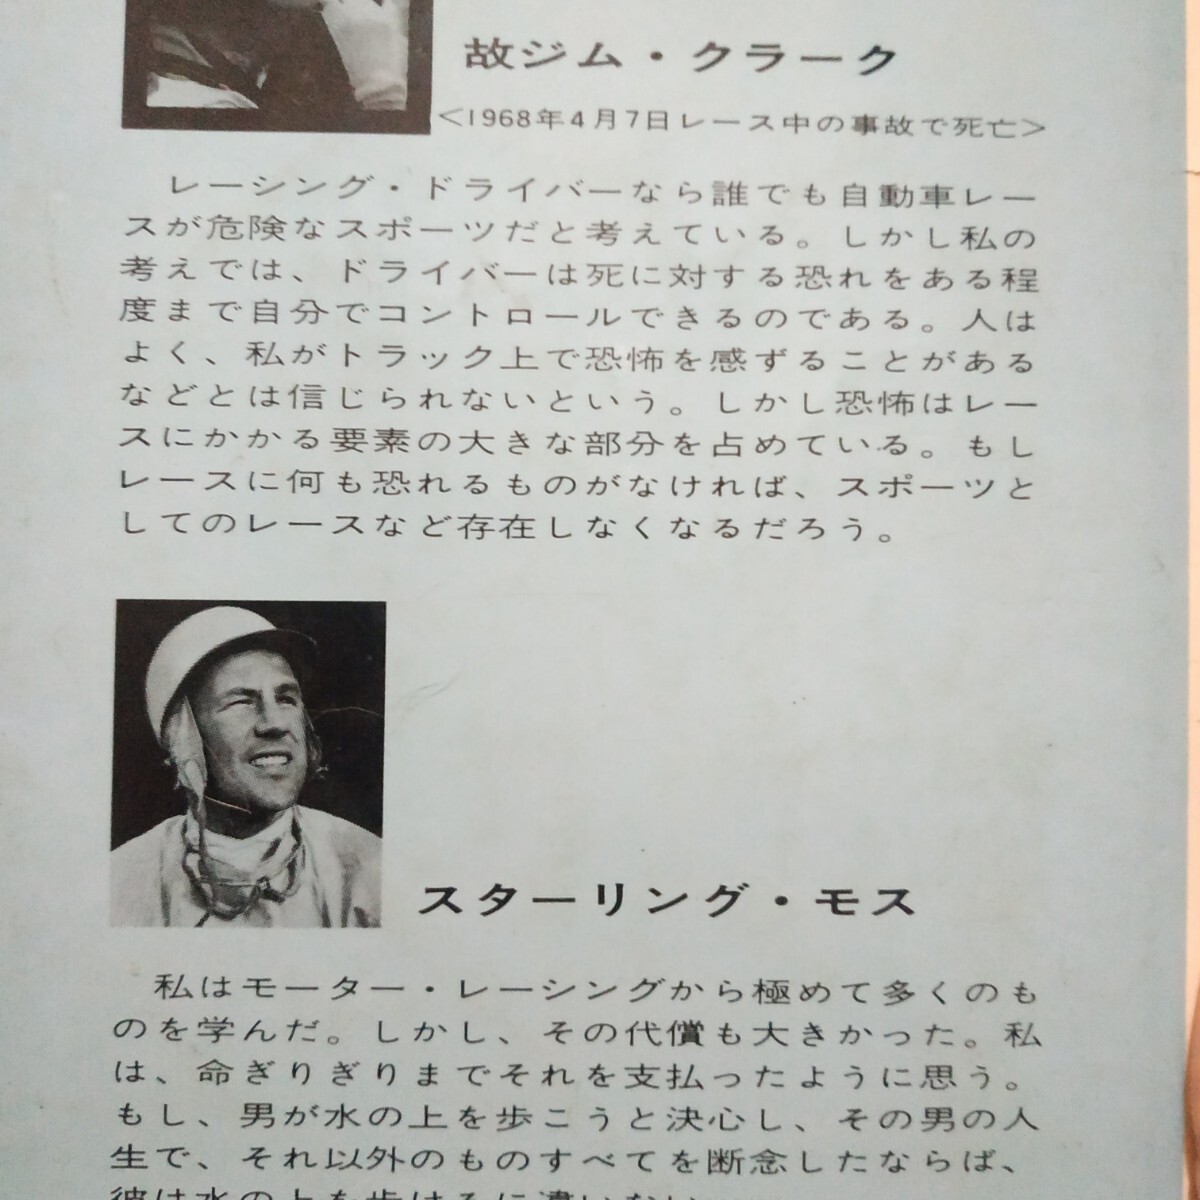 故ジム・クラーク
<1968年4月7日レース中の事故で死亡>
レーシング・ドライバーなら誰でも自動車レー
スが危険なスポーツだと考えている。しかし私の
考えでは、ドライバーは死に対する恐れをある程
度まで自分でコントロールできるのである。人は
よく、私がトラック上で恐怖を感ずることがある
などとは信じられないという。しかし恐怖はレー
スにかかる要素の大きな部分を占めている。もし
レースに何も恐れるものがなければ、スポーツと
してのレースなど存在しなくなるだろう。
スターリング・モス
私はモーター・レーシングから極めて多くのも
のを学んだ。しかし、その代償も大きかった。私
は、命ぎりぎりまでそれを支払ったように思う。
もし、男が水の上を歩こうと決心し、その男の人
生で、それ以外のものすべてを断念したならば、
彼は水の上を歩けるに違いない